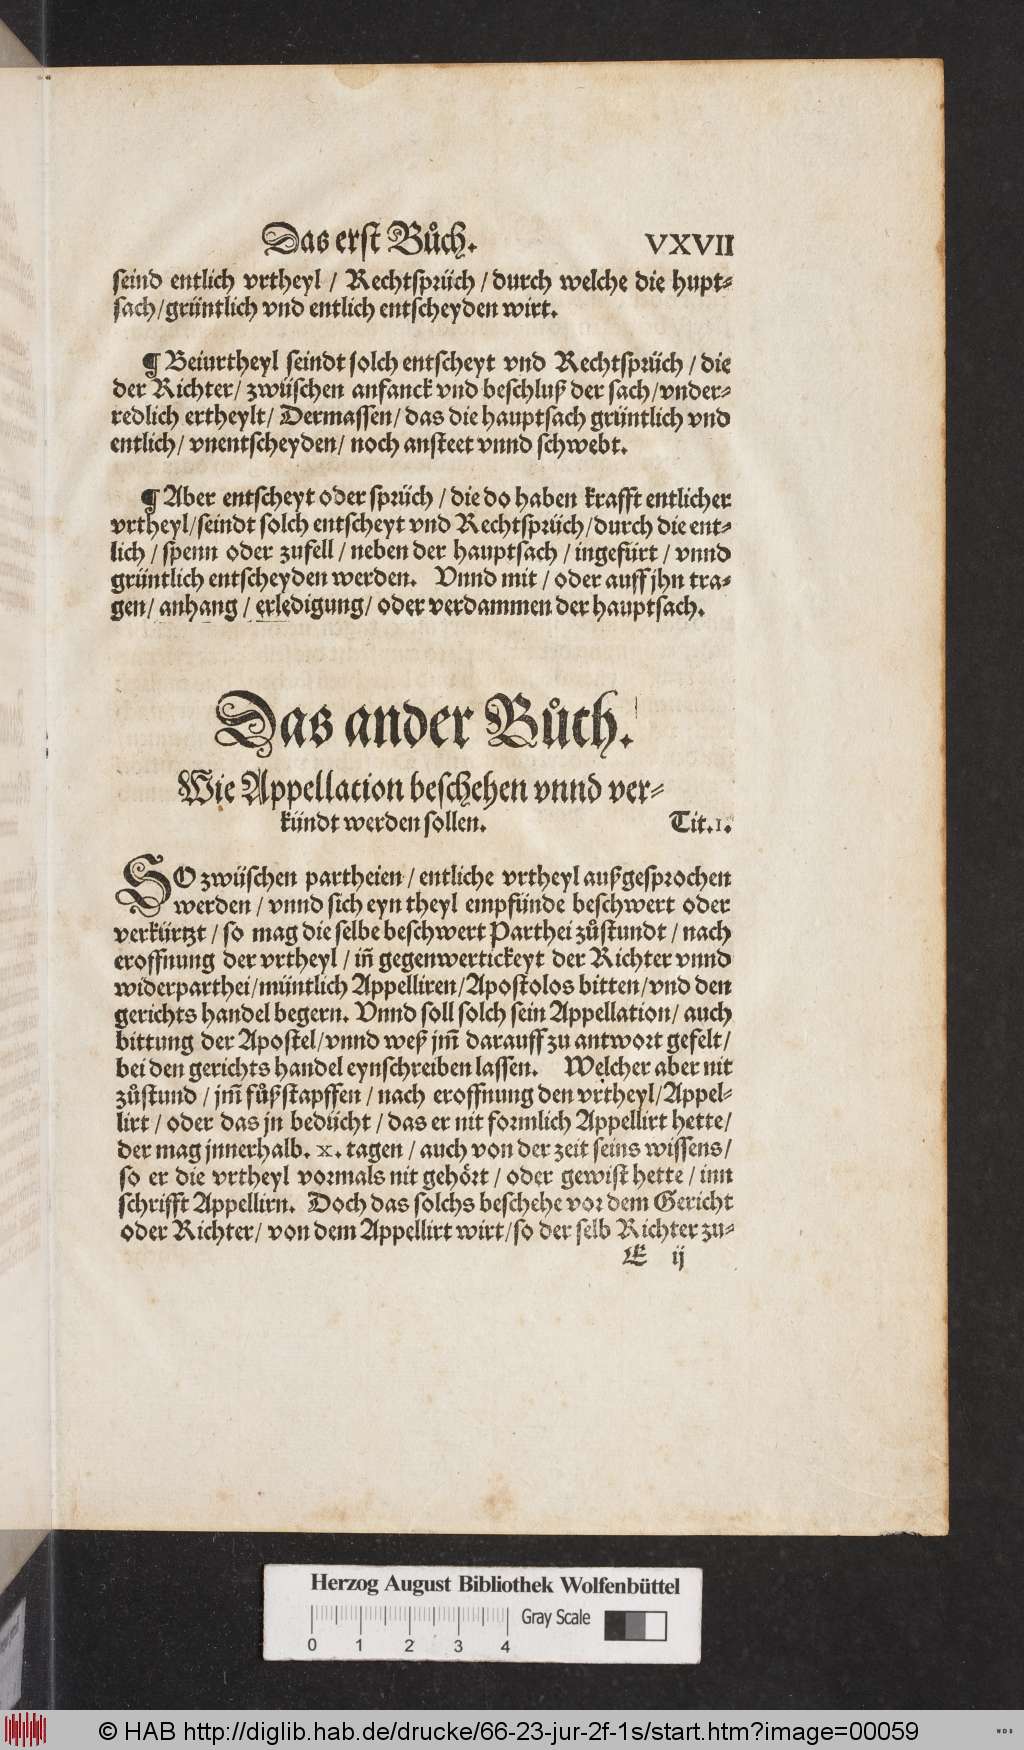 Das erst Bůch. VXVII
seind entlich vrtheyl / Rechtsprüch / durch welche die hupt⸗
sach / grüntlich vnd entlich entscheyden wirt.
¶ Beiurtheyl seindt solch entscheyt vnd Rechtsprüch / die
der Richter / zwüschen anfanck vnd beschluß der sach / vnder⸗
redlich ertheylt / Dermassen / das die hauptsach grüntlich vnd
entlich / vnentscheyden / noch ansteet vnnd schwebt.
¶ Aber entscheyt oder sprüch / die do haben krafft entlicher
vrtheyl / seindt solch entscheyt vnd Rechtsprüch / durch die ent⸗
lich / spenn oder zufell / neben der hauptsach / ingefürt / vnnd
grüntlich entscheyden werden. Vnnd mit / oder auff jhn tra⸗
gen / anhang / erledigung / oder verdammen der hauptsach.
Das ander Bůch.
Wie Appellation beschehen vnnd ver⸗
kündt werden sollen. Tit. 1.
SO zwüschen partheien / entliche vrtheyl außgesprochen
werden / vnnd sich eyn theyl empfünde beschwert oder
verkürtzt / so mag die selbe beschwert Parthei zůstundt / nach
eroffnung der vrtheyl / iñ gegenwertickeyt der Richter vnnd
widerparthei / müntlich Appelliren / Apostolos bitten / vnd den
gerichts handel begern. Vnnd soll solch sein Appellation / auch
bittung der Apostel / vnnd weß jm̃ darauff zu antwort gefelt /
bei den gerichts handel eynschreiben lassen. Welcher aber nit
zůstund / jm̃ fůßstapffen / nach eroffnung den vrtheyl / Appel⸗
lirt / oder das jn bedücht / das er nit formlich Appellirt hette /
der mag jnnerhalb. x. tagen / auch von der zeit seins wissens /
so er die vrtheyl vormals nit gehört / oder gewist hette / inn
schrifft Appellirn. Doch das solchs beschehe vor dem Gericht
oder Richter / von dem Appellirt wirt / so der selb Richter zu⸗
E ij
Herzog August Bibliothek Wolfenbüttel
Gray Scale
0 1 2 3 4
© HAB http://diglib.hab.de/drucke/66-23-jur-2f-1s/start.htm?image=00059